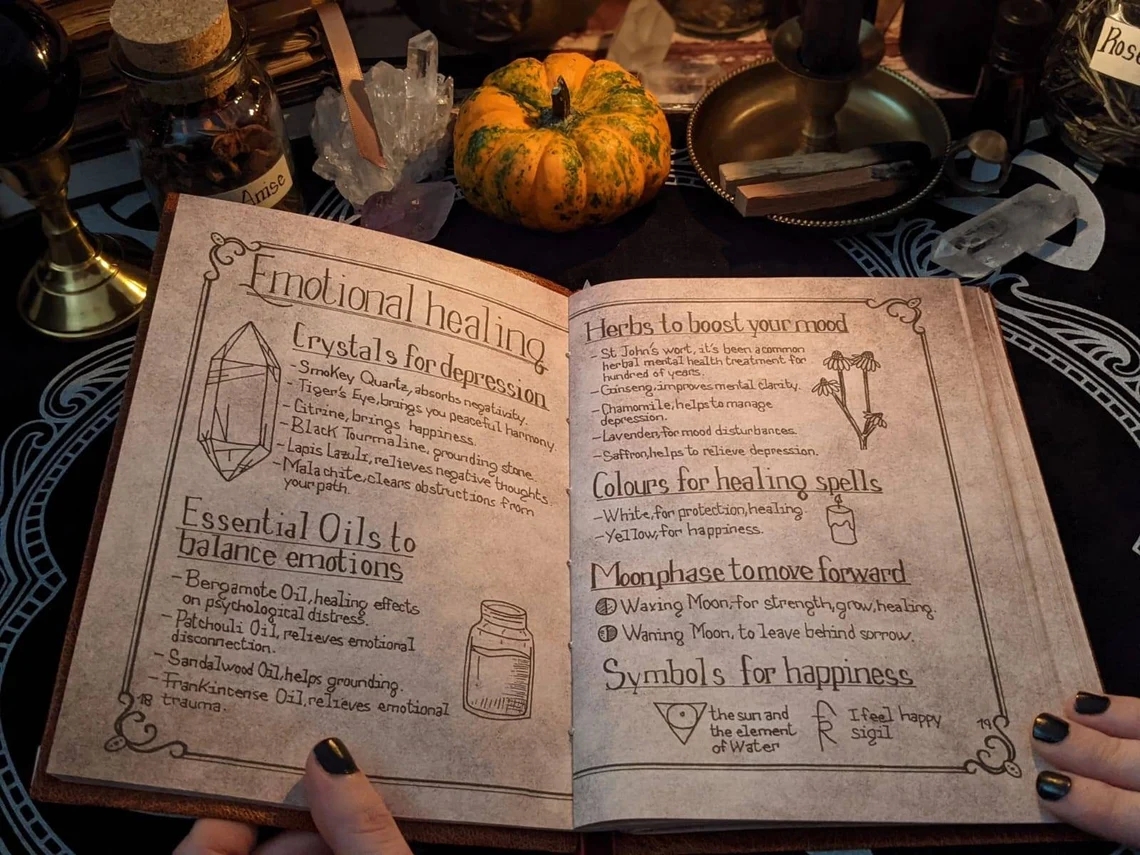 Anise
Rose
Emotional healing
Crystals for depression
- Smokey Quartz, absorbs negativity.
- Tiger's Eye, brings you peaceful harmony
- Citrine, brings happiness.
- Black Tourmaline, grounding stone.
- Lapis Lazuli, relieves negative thoughts.
- Malachite, clears obstructions from
your path.
Essential Oils to
balance emotions
- Bergamote Oil, healing effects
on psychological distress.
- Patchouli Oil, relieves emotional
disconnection.
- Sandalwood Oil, helps grounding.
- Frankincense Oil, relieves emotional
trauma.
18
Herbs to boost your mood
- St John's wort, it's been a common
herbal mental health treatment for
hundred of years.
- Ginseng, improves mental clarity.
- Chamomile, helps to manage
depression.
- Lavender, for mood disturbances.
- Saffron, helps to relieve depression.
Colours for healing spells
- White, for protection, healing.
- Yellow, for happiness.
Moonphase to move forward
Waxing Moon, for strength, grow, healing.
Waning Moon, to leave behind sorrow.
Symbols for happiness
the sun and
the element
of Water
I feel happy
sigil
19